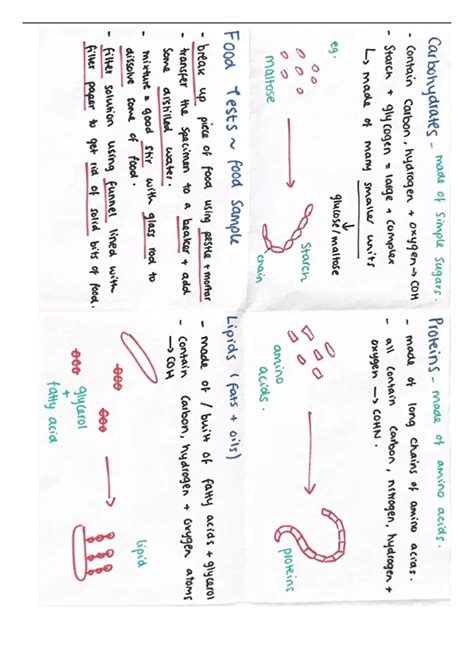 Carbohydrates - made of simple sugars.
- contain carbon, hydrogen + oxygen → COH
- Starch + glycogen = large + complex
↳ made of many smaller units
eg.
glucose/maltose
maltose
Starch
chain
Proteins - made of amino acids.
- made of long chains of amino acids.
- all contain carbon, nitrogen, hydrogen +
oxygen → COHN.
amino
acids.
proteins
Food Tests ~ food sample
- break up piece of food using pestle + mortar
- transfer the specimen to a beaker + add
some distilled water.
- mixture = good stir with glass rod to
dissolve some of food.
- filter solution using funnel lined with
filter paper to get rid of solid bits of food.
Lipids (fats + oils)
- made of / built of fatty acids + glycerol
- contain carbon, hydrogen + oxygen atoms
→ COH
glycerol
+
fatty acid
lipid